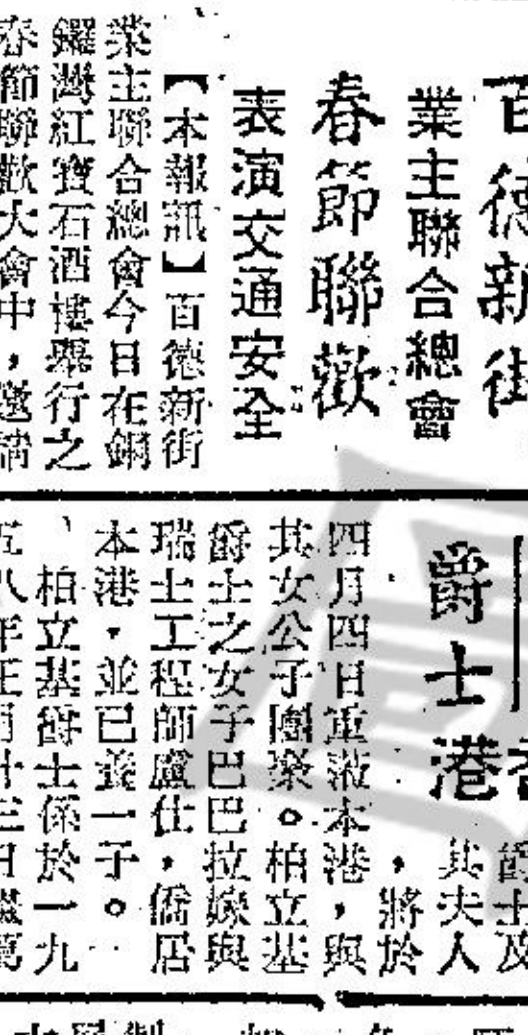 百德新街
業主聯合總會
春節聯歡
表演交通安全
【本報訊】百德新街
業主聯合總會今日在銅
鑼灣紅寶石酒樓舉行之
春節聯歡大會中，邀請
爵士港
爵士及
其夫人
，將於
四月四日重蒞本港，與
其女公子團聚。柏立基
爵士之女子巴巴拉嫁與
瑞士工程師盧仕，僑居
本港，並已養一子。
柏立基爵士係於一九
五八年正月廿三日繼葛